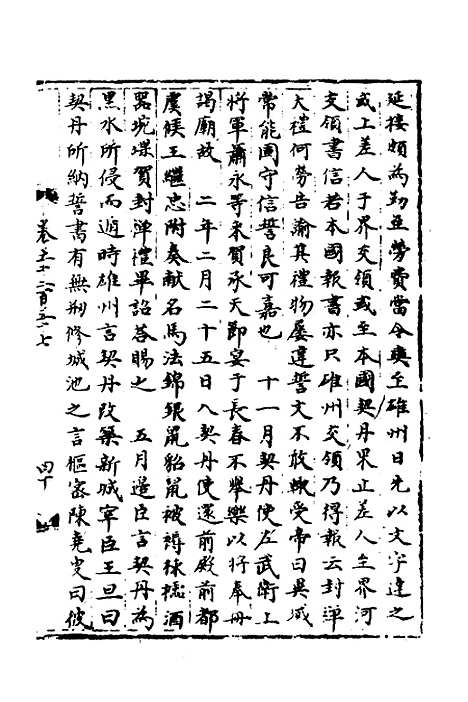 延接頗為勤至勞費當令與至雄州日先以文字達之
或上差人于界交領或至本國契丹果止差人至界河
交領書信若本國報書亦只雄州交領乃得報云封禪
大禮何勞告諭其禮物屢違誓文不敢輒受帝曰異域
常能固守信誓良可嘉也　十一月契丹使左武衛上
將軍蕭永等來賀承天節宴于長春不舉樂以將奉冊
謁廟故　二年二月二十五日入契丹使還前殿前都
虞候王繼忠附奏獻名馬法錦銀鼠貂鼠被褥秣糯酒
器垸堞賀封禪禮畢詔答賜之　五月邊臣言契丹為
黑水所侵而遁時雄州言契丹改築新城宰臣王旦曰
契丹所納誓書有無刱修城池之言樞密陳堯叟曰彼
卷五千二百五十七
四十